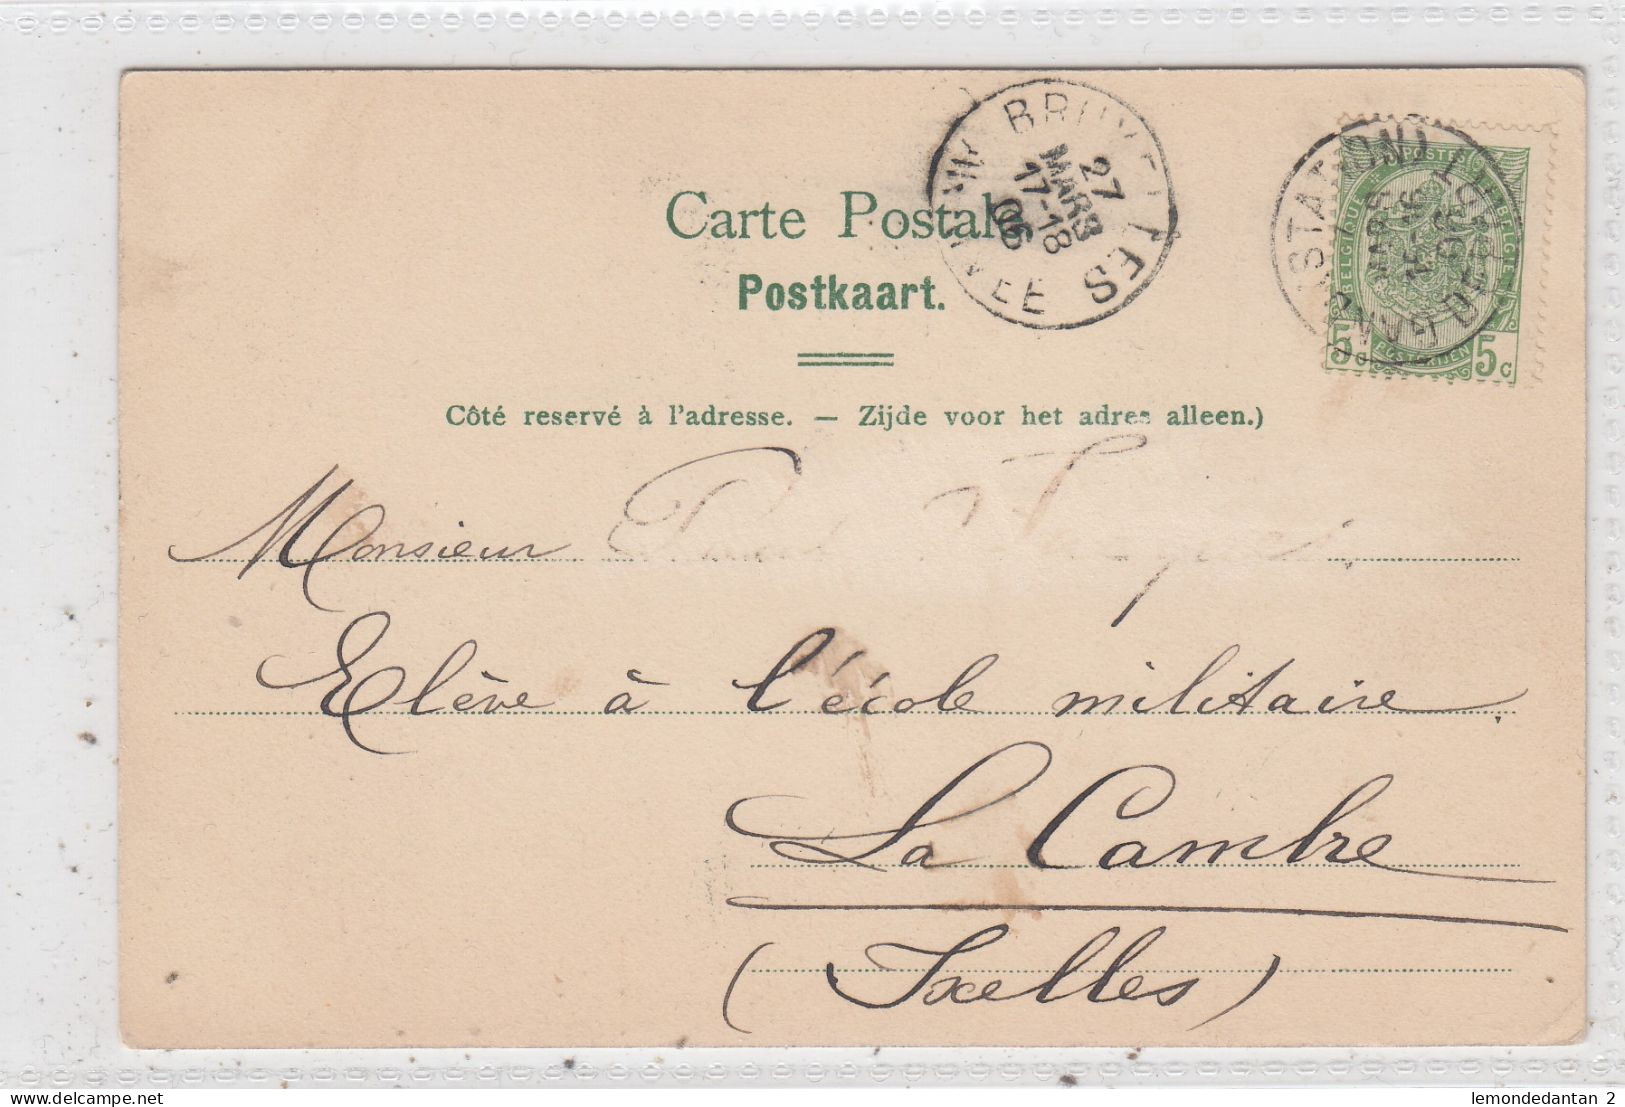 Carte Postale
Postkaart.
Côté reservé à l'adresse. — Zijde voor het adres alleen.)
BRUXELLES
27
MARS
17-18
06
ARRIVEE
(STATION)
MARS
06
POSTES
BELGIQUE
BELGIE
POSTERIJEN
5c 5c
Monsieur
Elève à l'école militaire
La Cambre
(Ixelles)
lemondedantan 2